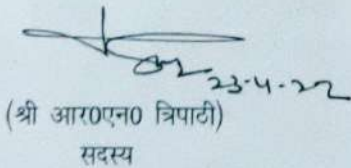 23-4-22
(श्री आर0एन0 त्रिपाठी)
सदस्य